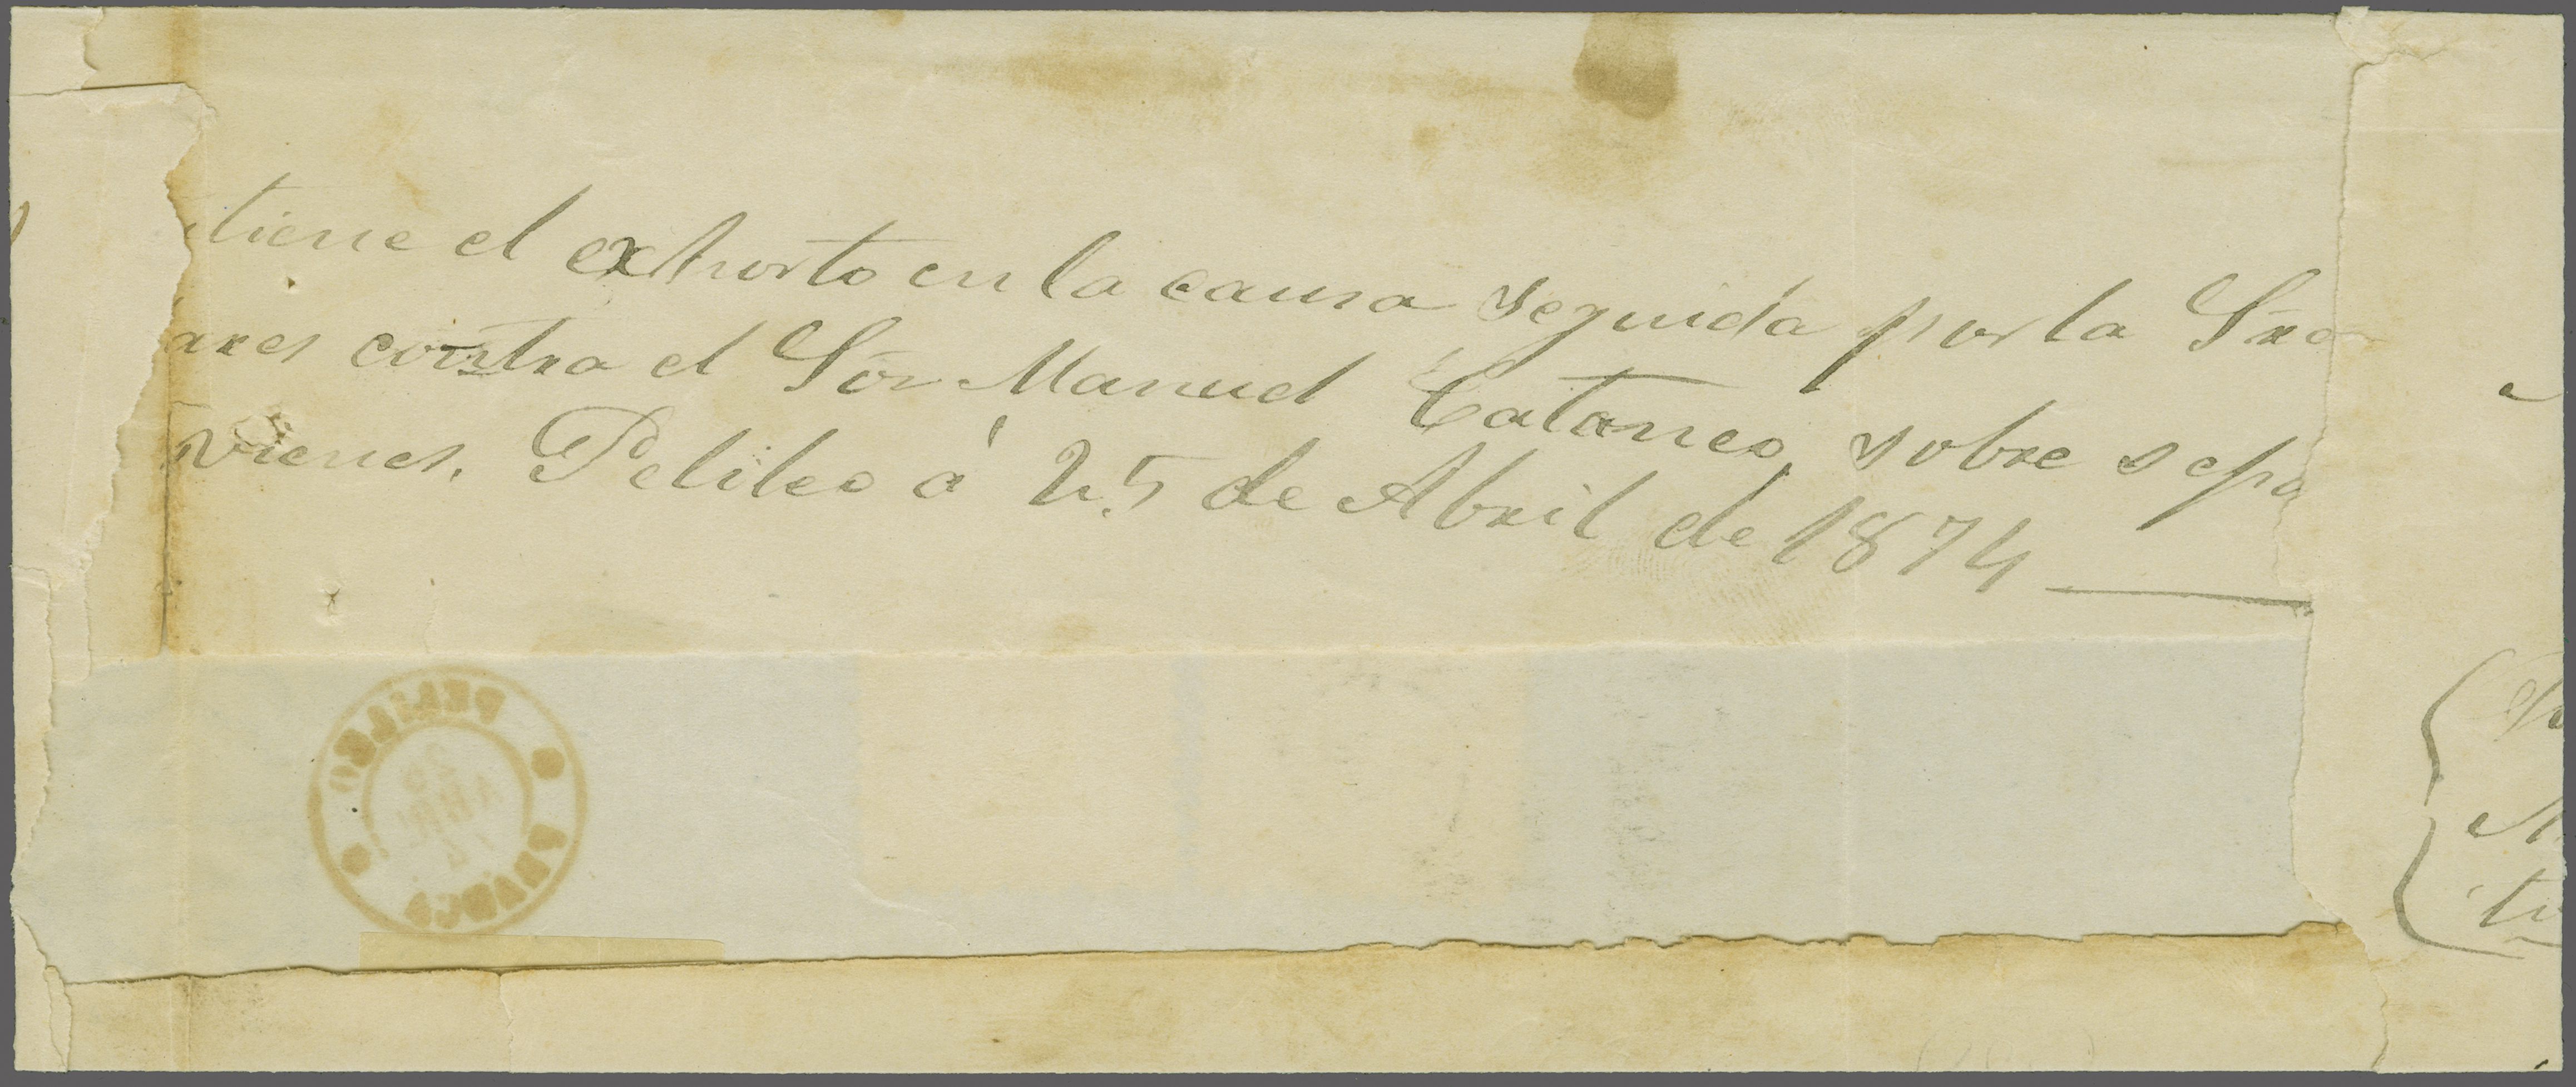 tiene el exhorto en la causa seguida por la Sra
ares contra el Sor Manuel Cataneo, sobre sepa
vienes. Pelileo á 25 de Abril de 1874
PELILEO
FRANCA